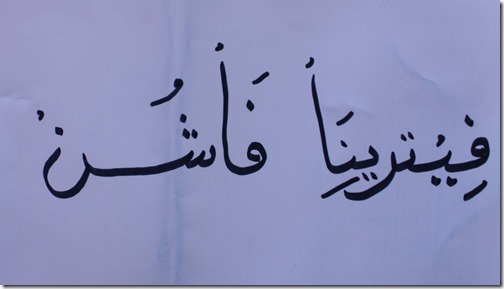 فِيْتْرِينَا فَاشُنْ